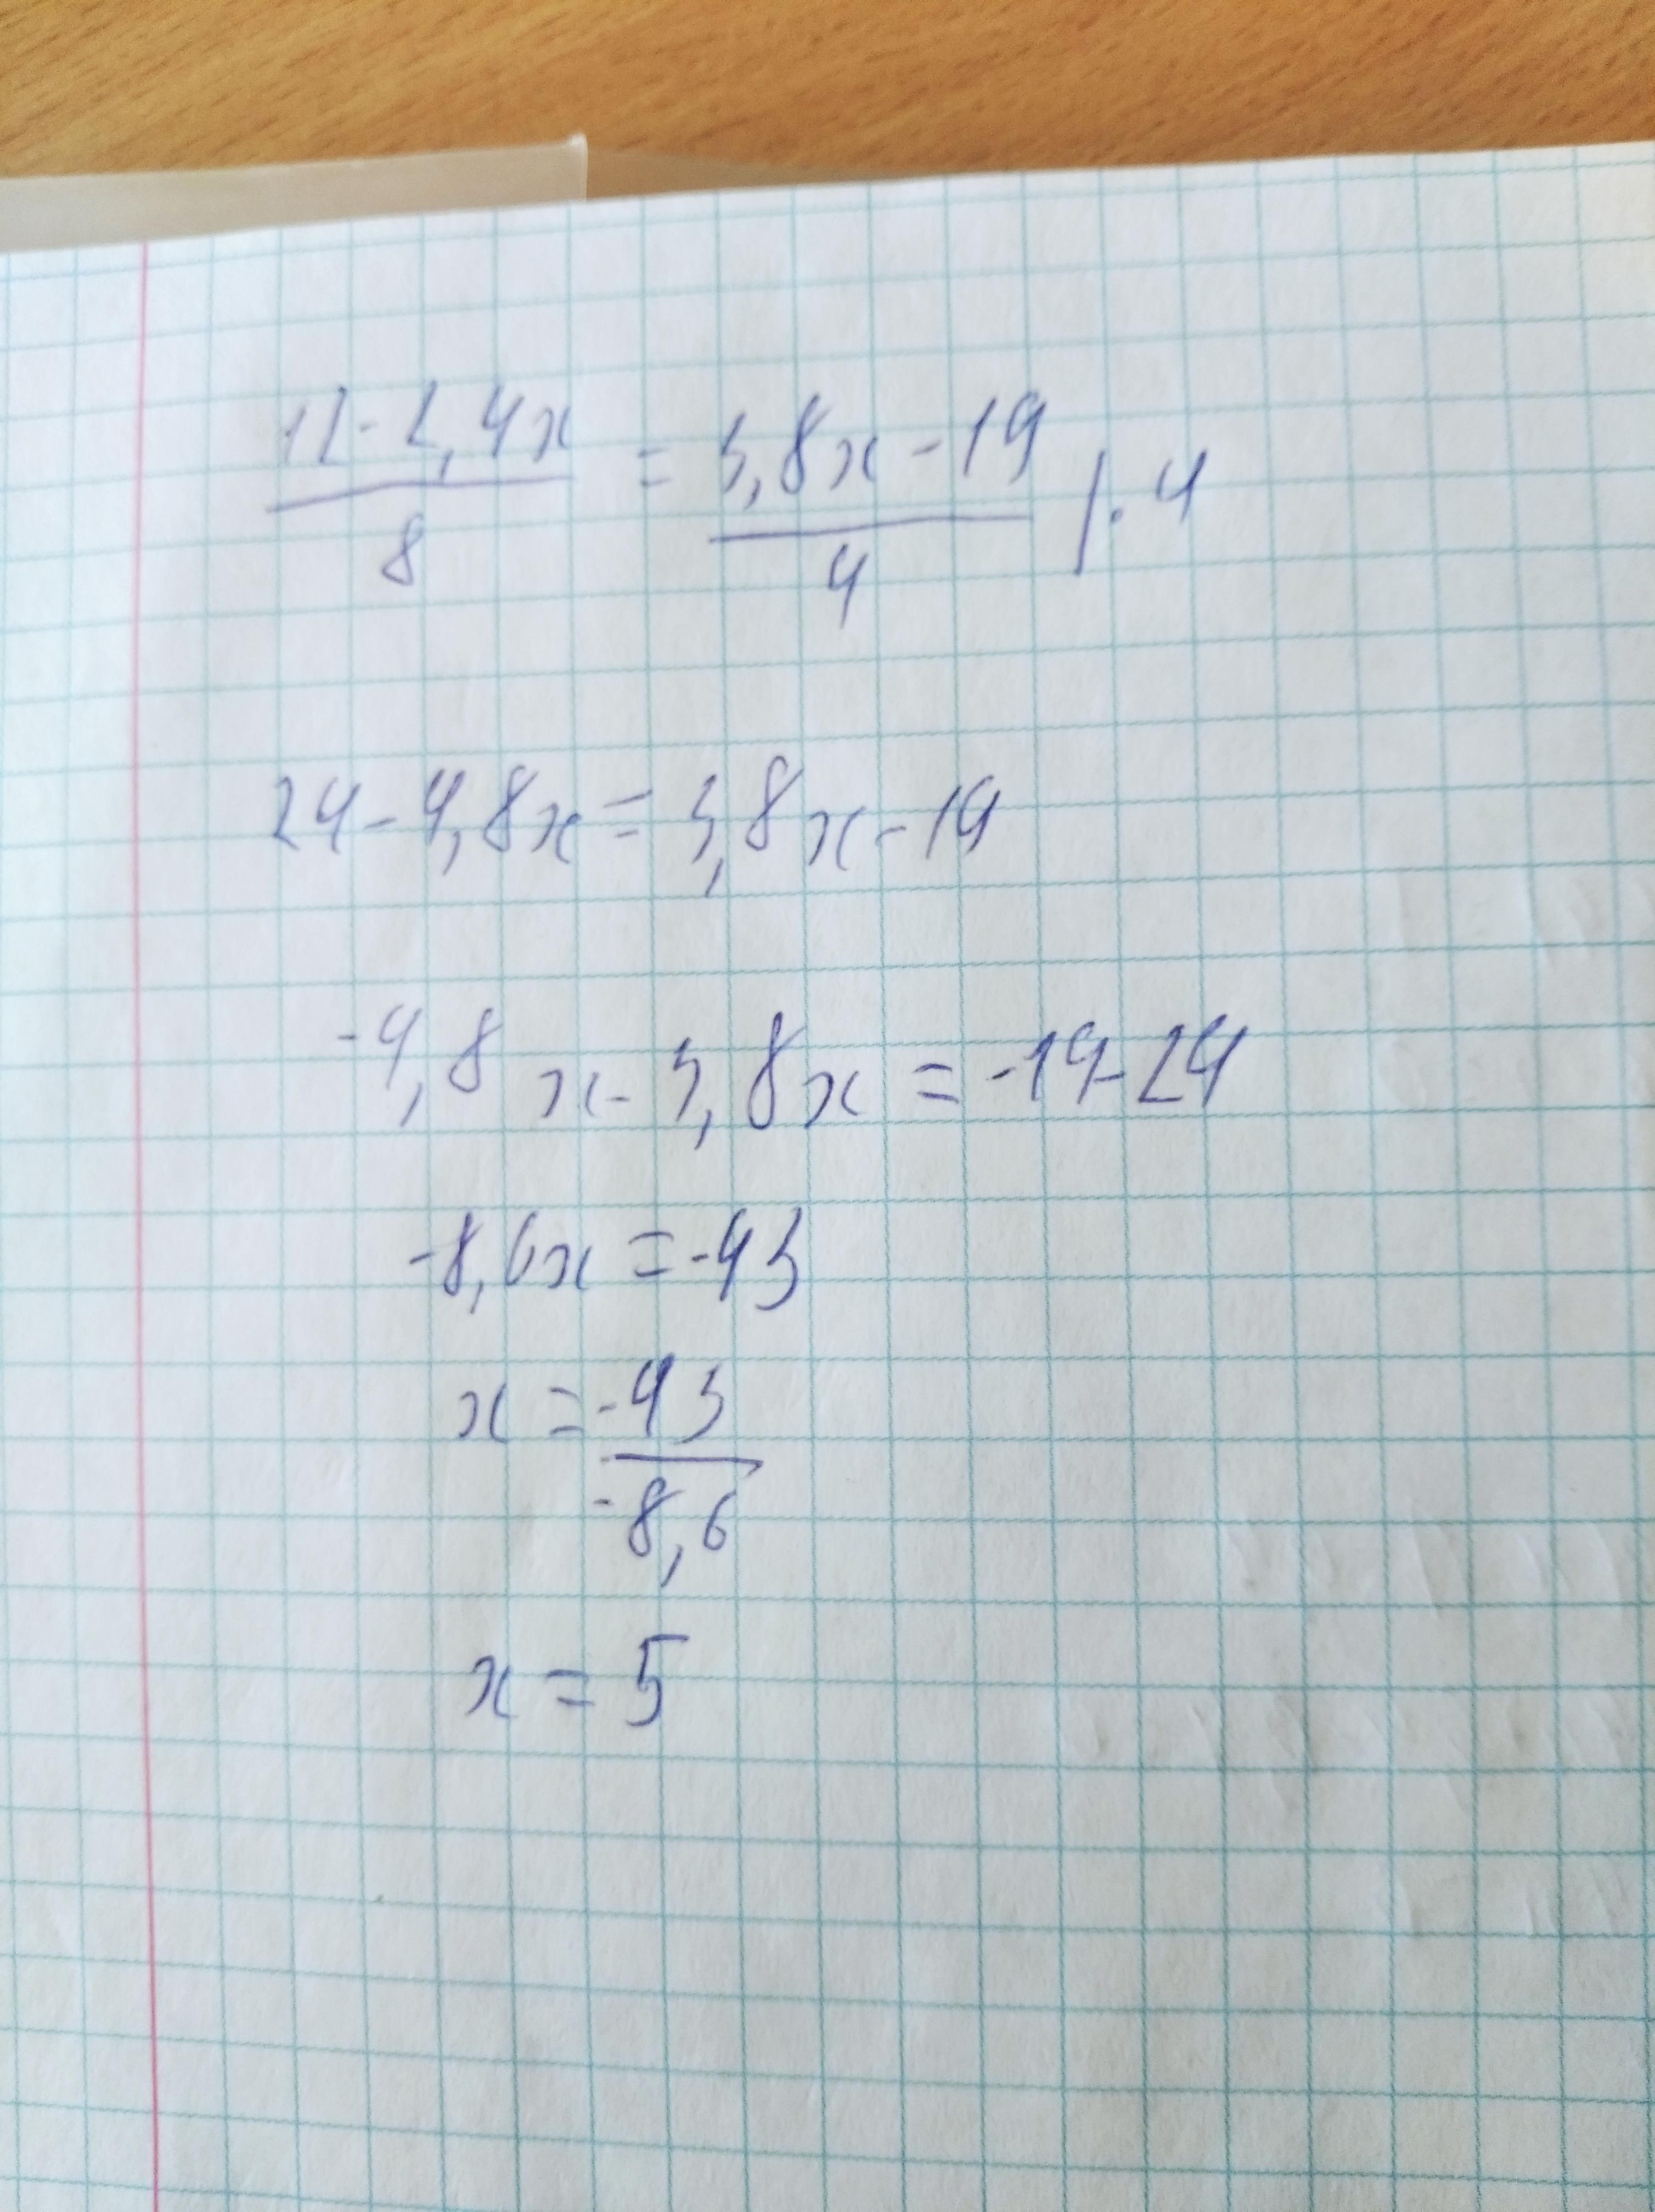 (12-2,4x)/8 = (3,8x-19)/4 |·4
24-4,8x=3,8x-19
-4,8x-3,8x=-19-24
-8,6x=-43
x=-43/-8,6
x=5